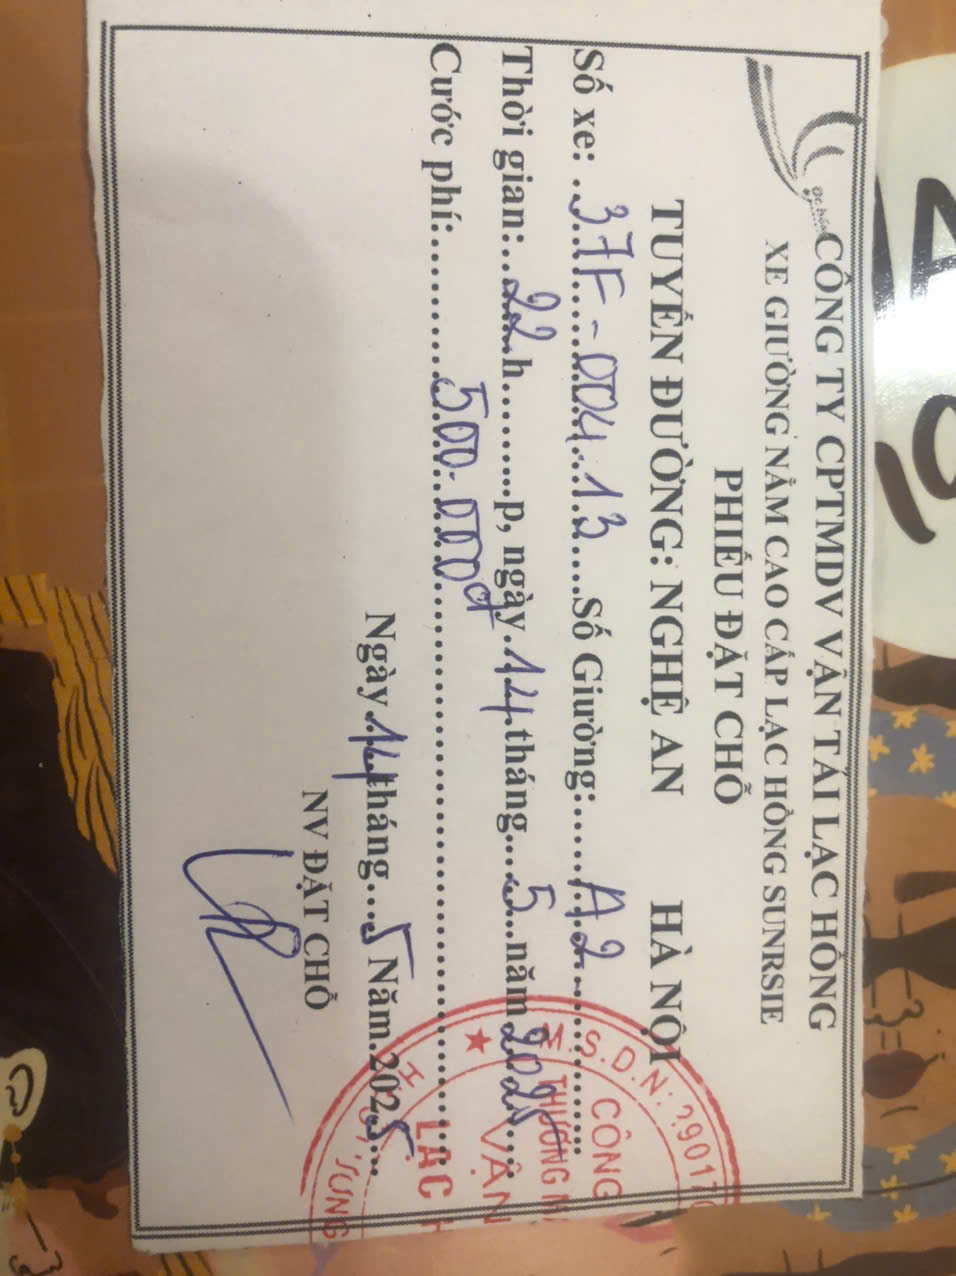 CÔNG TY CPTMDV VẬN TẢI LẠC HỒNG
XE GIƯỜNG NẰM CAO CẤP LẠC HỒNG SUNRSIE
PHIẾU ĐẶT CHỖ
TUYẾN ĐƯỜNG: NGHỆ AN HÀ NỘI
Số xe: 37F-004.13 Số Giường: A2
Thời gian: 22 h p, ngày 14 tháng 5 năm 2025
Cước phí: 500.000đ
Ngày 14 tháng 5 Năm 2025
NV ĐẶT CHỖ
M.S.D.N: 290170
CÔNG
THƯƠNG M
VẬN
LẠC H